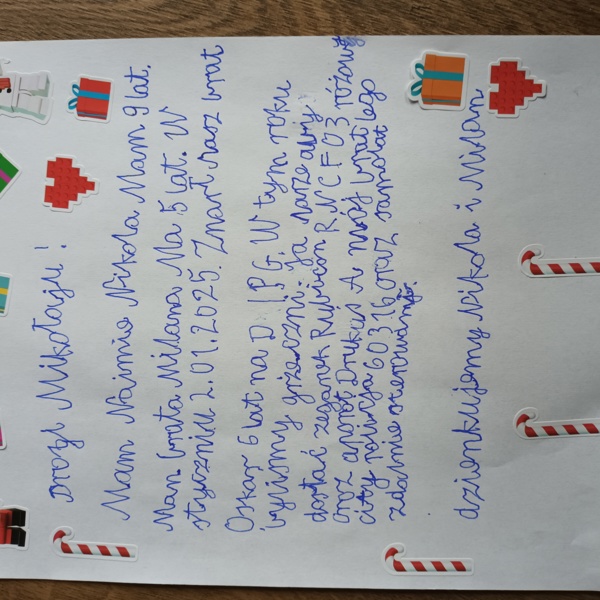 Drogi Mikołaju!
Mam Naimie Nikola Mam 9 lat.
Mam brata Milana Ma 5 lat. W
styczniu 2.01.2025. Zmarł nasz brat
Oskar 6 lat na DIPG. W tym roku
byliśmy grzeczni. Ja marzę aby
dostać zegarek Rubicon RNCF03 różowy
oraz aparat Drukas A mój brat lego
city policja 60316 oraz samolot
zdalnie sterowany.
dzienkujemy Nikola i Milan